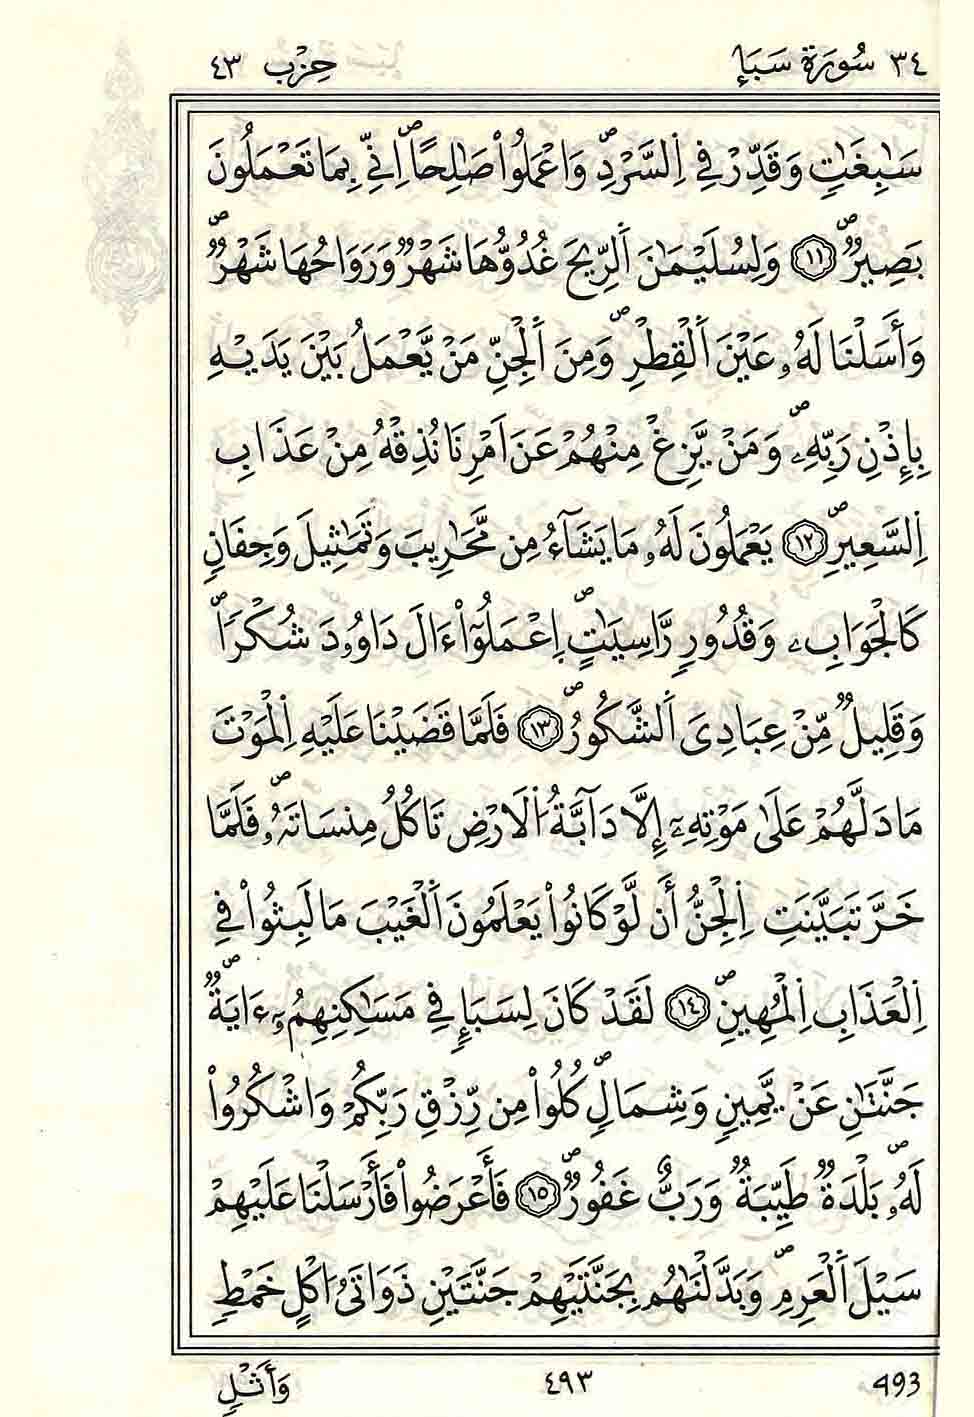 ٣٤ سُورَةُ سَبَإٍ حِزْب ٤٣
سَٰبِغَٰتٖ وَقَدِّرْ فِے اِ۬لسَّرْدِۖ وَاعْمَلُواْ صَٰلِحاًۖ اِنِّے بِمَا تَعْمَلُونَ
بَصِيرٞۖ ١١ وَلِسُلَيْمَٰنَ اَ۬لرِّيحَ غُدُوُّهَا شَهْرٞ وَرَوَاحُهَا شَهْرٞۖ
وَأَسَلْنَا لَهُۥ عَيْنَ اَ۬لْقِطْرِۖ وَمِنَ اَ۬لْجِنِّ مَنْ يَّعْمَلُ بَيْنَ يَدَيْهِ
بِإِذْنِ رَبِّهِۦۖ وَمَنْ يَّزِغْ مِنْهُمْ عَنَ اَمْرِنَا نُذِقْهُ مِنْ عَذَابِ
اِ۬لسَّعِيرِۖ ١٢ يَعْمَلُونَ لَهُۥ مَا يَشَآءُ مِن مَّحَٰرِيبَ وَتَمَٰثِيلَ وَجِفَانٖ
كَالْجَوَابِۦ وَقُدُورٖ رَّاسِيَٰتٍۖ اِعْمَلُوٓاْ ءَالَ دَاوُۥدَ شُكْراٗۖ
وَقَلِيلٞ مِّنْ عِبَادِيَ اَ۬لشَّكُورُۖ ١٣ فَلَمَّا قَضَيْنَا عَلَيْهِ اِ۬لْمَوْتَ
مَا دَلَّهُمْ عَلَىٰ مَوْتِهِۦٓ إِلَّا دَآبَّةُ اُ۬لَارْضِ تَاكُلُ مِنسَاتَهُۥۖ فَلَمَّا
خَرَّ تَبَيَّنَتِ اِ۬لْجِنُّ أَن لَّوْ كَانُواْ يَعْلَمُونَ اَ۬لْغَيْبَ مَا لَبِثُواْ فِے
اِ۬لْعَذَابِ اِ۬لْمُهِينِۖ ١٤ لَقَدْ كَانَ لِسَبَإٖ فِے مَسَٰكِنِهِمُۥٓ ءَايَةٞۖ
جَنَّتَٰنِ عَنْ يَّمِينٖ وَشِمَالٖۖ كُلُواْ مِن رِّزْقِ رَبِّكُمْ وَاشْكُرُواْ
لَهُۥۖ بَلْدَةٞ طَيِّبَةٞ وَرَبٌّ غَفُورٞۖ ١٥ فَأَعْرَضُواْ فَأَرْسَلْنَا عَلَيْهِمْ
سَيْلَ اَ۬لْعَرِمِۖ وَبَدَّلْنَٰهُم بِجَنَّتَيْهِمْ جَنَّتَيْنِ ذَوَاتَيُ ا۟كْلٍ خَمْطٖ
493 ٤٩٣ وَأَثْلٖ